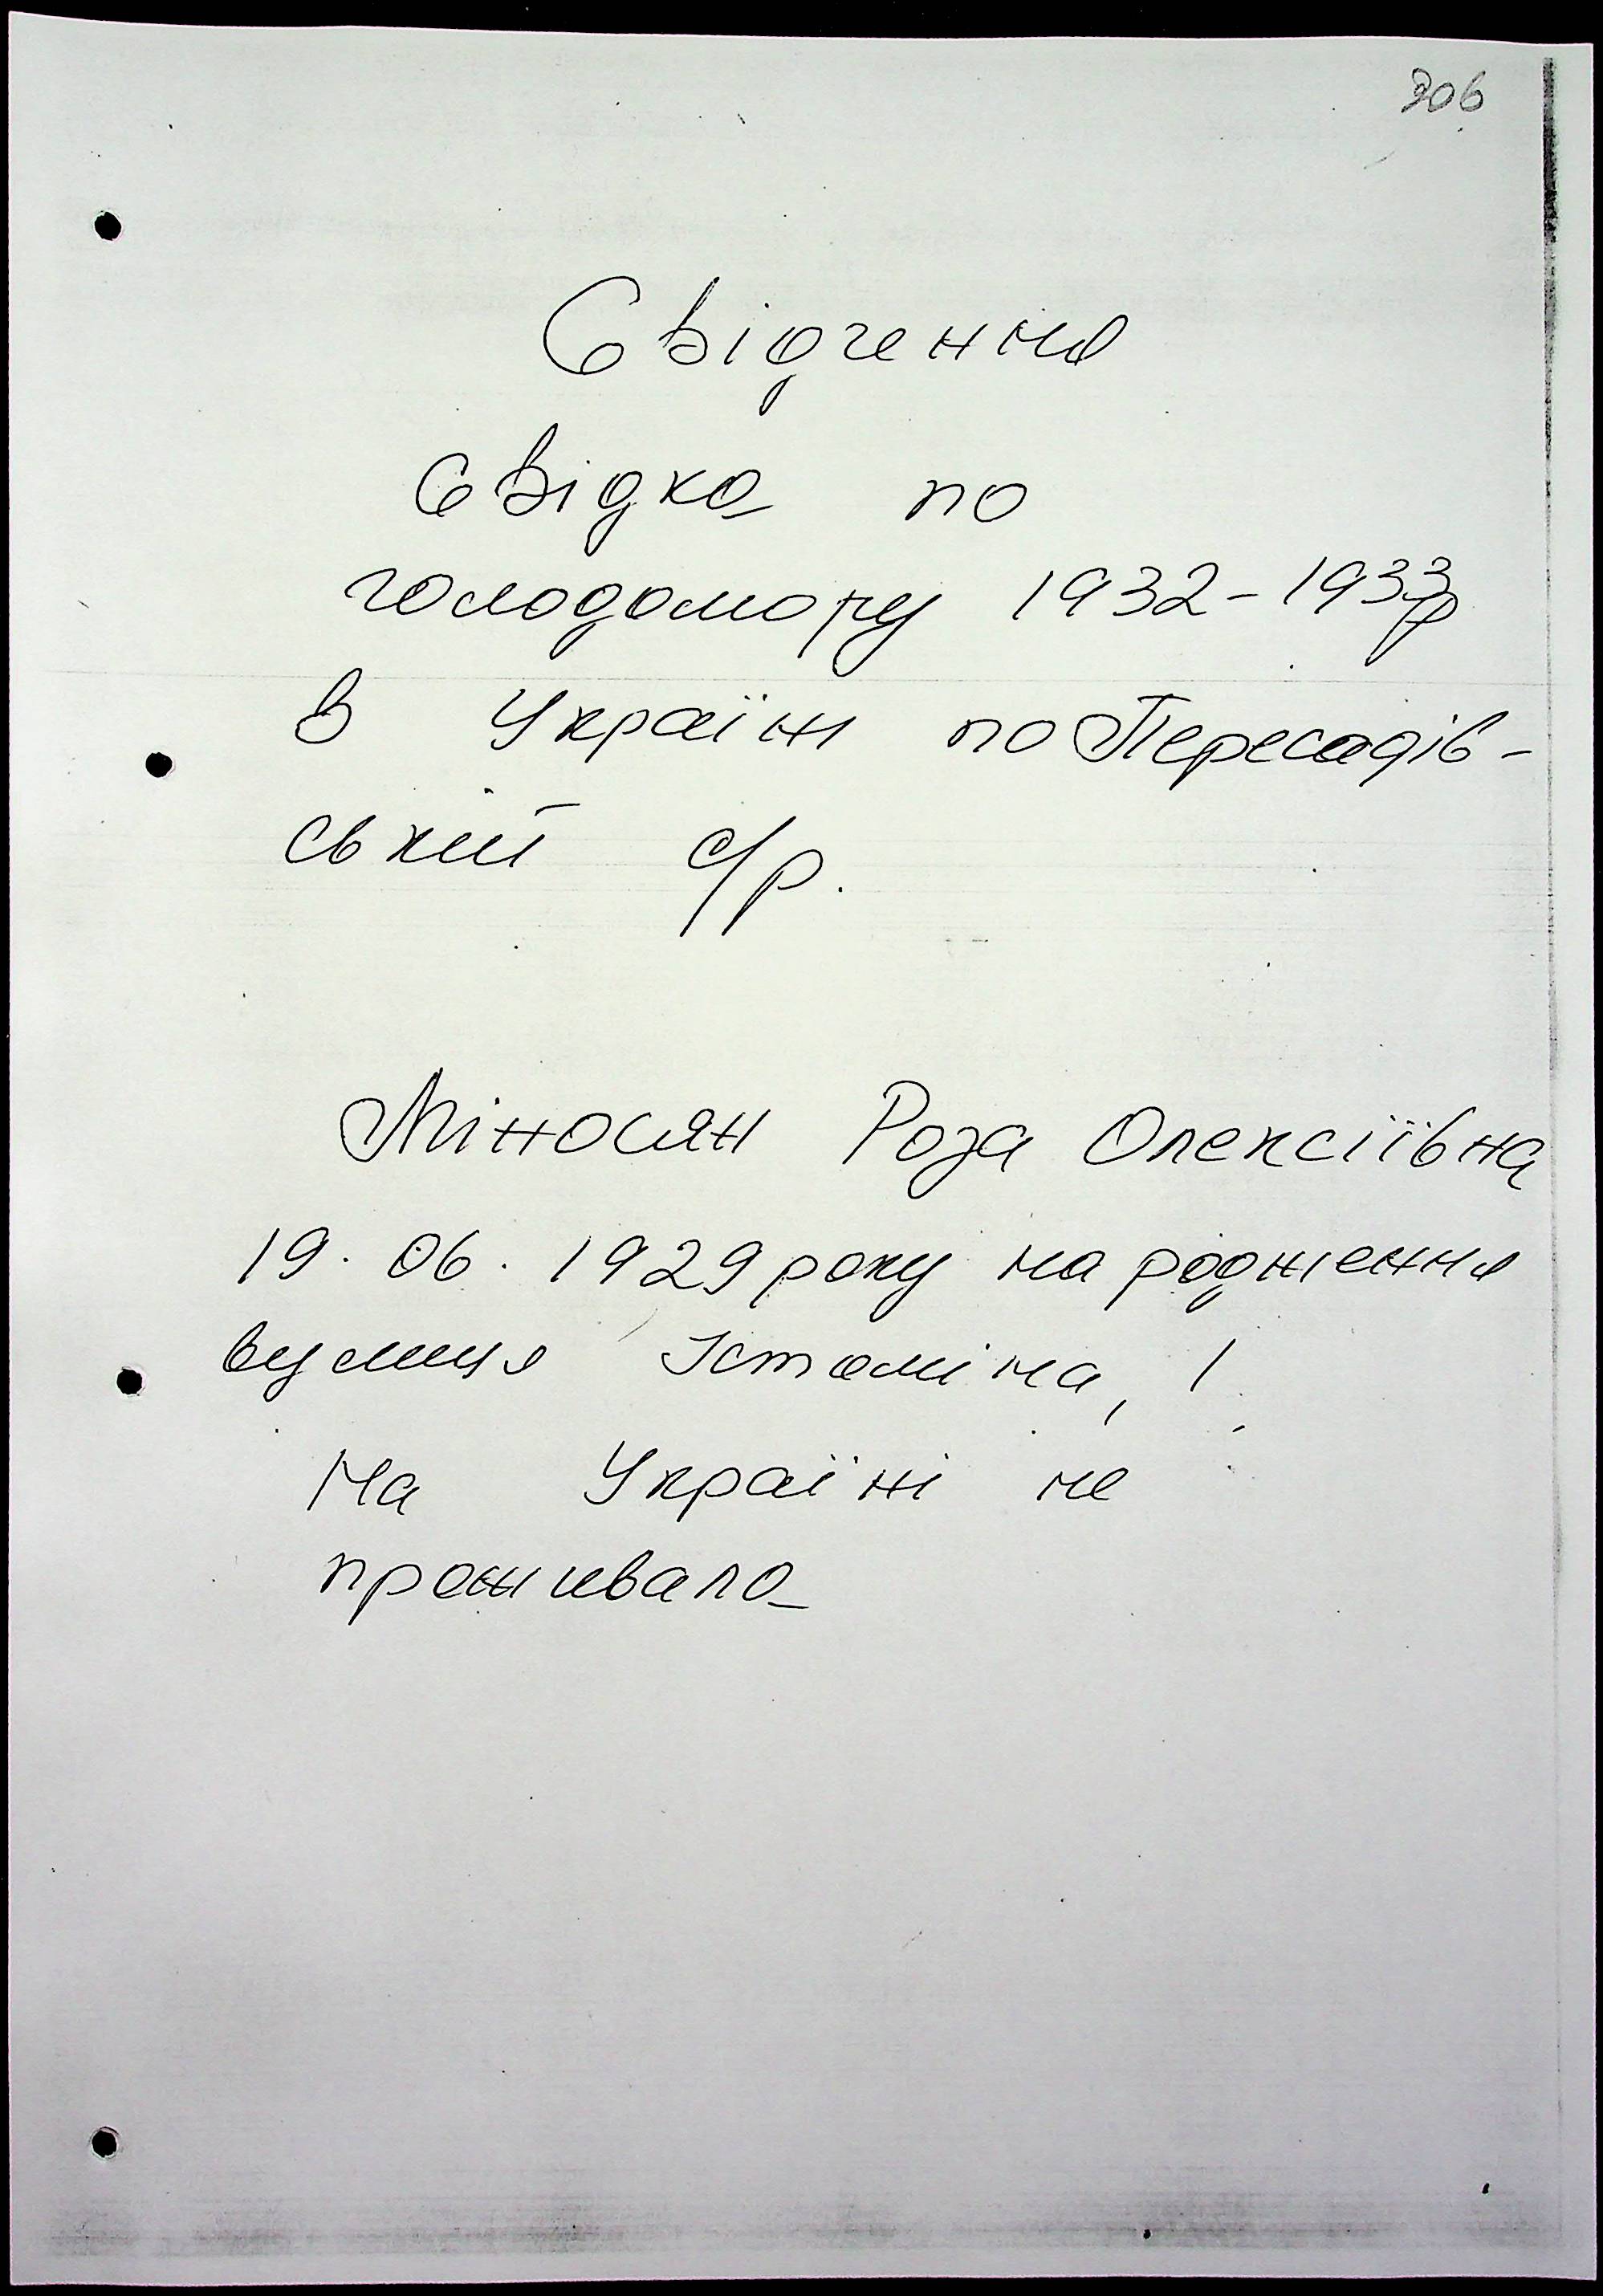 306
Свідчення
свідка по
голодомору 1932-1933р
в Україні по Пересадів-
ській с/р.
Міносян Роза Олексіївна
19.06.1929 року народження
вулиця Істоміна, 1
На Україні не
проживала